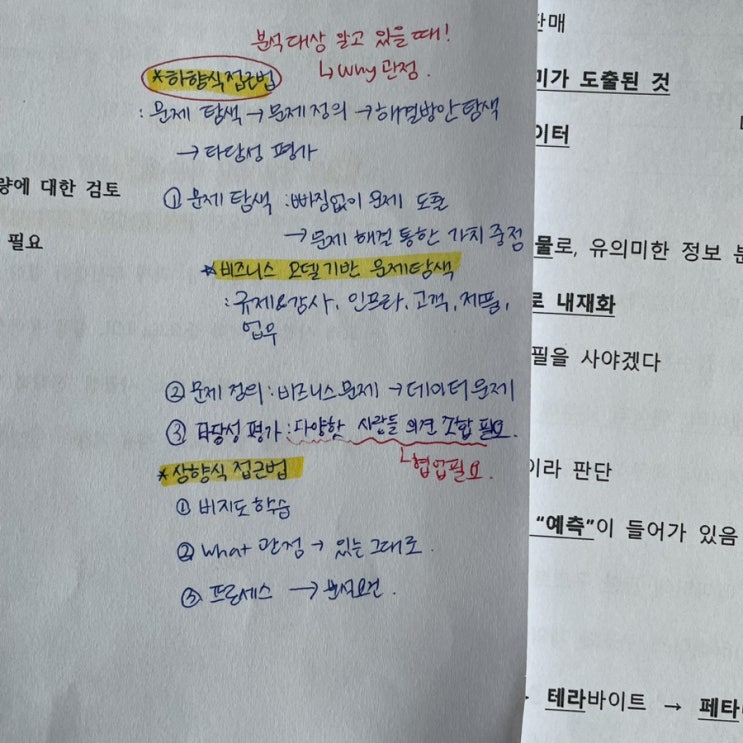 분석대상 알고 있을 때!
↳ Why 관점.
*하향식 접근법
: 문제 탐색 → 문제 정의 → 해결방안 탐색
→ 타당성 평가
① 문제 탐색 : 빠짐없이 문제 도출
→ 문제 해결 통한 가치 중점
*비즈니스 모델 기반 문제탐색
: 규제&감사, 인프라, 고객, 제품,
업무
② 문제 정의 : 비즈니스문제 → 데이터문제
③ 타당성 평가 : 다양한 사람들 의견 조합 필요.
↳ 협업필요.
*상향식 접근법
① 비지도학습
② What 관점 → 있는 그대로.
③ 프로세스 → 분석요건.
량에 대한 검토
필요
판매
미가 도출된 것
이터
물로, 유의미한 정보 분
로 내재화
필을 사야겠다
이라 판단
"예측"이 들어가 있음
테라바이트 → 페타